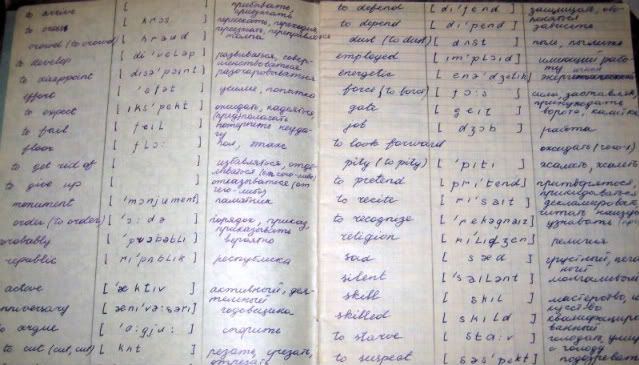 to arrive [ ] прибывать,
приезжать
to cross [ krɔs ] пересекать, переходить
crowd (to crowd) [ kraud ] толпа
to develop [ di'veləp ] развиваться, совер-
шенствоваться
to disappoint [ disə'pɔint ] разочаровывать
effort [ 'efət ] усилие, попытка
to expect [ iks'pekt ] ожидать, надеяться,
(пред)полагать
to fail [ feil ] потерпеть неуда-
чу
floor [ flɔ: ] пол, этаж
to get rid of [ ] избавляться, отде-
лываться (от кого-либо)
to give up [ ] отказываться (от
чего-либо)
monument [ 'mɔnjument ] памятник
order (to order) [ 'ɔ:də ] порядок, приказ,
приказывать
probably [ 'prɔbəbli ] вероятно
republic [ ri'pʌblik ] республика
active [ 'æktiv ] активный, дея-
тельный
anniversary [ æni'və:səri ] годовщина
to argue [ 'ɑ:gju: ] спорить
to cut (cut, cut) [ kʌt ] резать, срезать,
отрезать
to defend [ di'fend ] защищать, обо-
to depend [ di'pend ] зависеть
dust (to dust) [ dʌst ] пыль
employed [ im'plɔid ] имеющий рабо-
ту
energetic [ enə'dʒetik ] энергетический
force (to force) [ fɔ:s ] сила, заставлять,
принуждать
gate [ geit ] ворота, калитка
job [ dʒɔb ] работа
to look forward ожидать (чего-л)
pity (to pity) [ 'piti ] жалость, жалеть
to pretend [ pri'tend ] притворяться,
прикидываться
to recite [ ri'sait ] декламировать,
читать наизусть
to recognize [ 'rekəgnaiz ] узнавать
religion [ ri'lidʒen ] религия
sad [ sæd ] грустный, печаль-
ный
silent [ 'sailənt ] молчаливый
skill [ skil ] мастерство,
skilled [ skild ] квалифициро-
ванный
to starve [ sta:v ] голодать, умирать
с голоду
to suspect [ səs'pekt ] подозревать